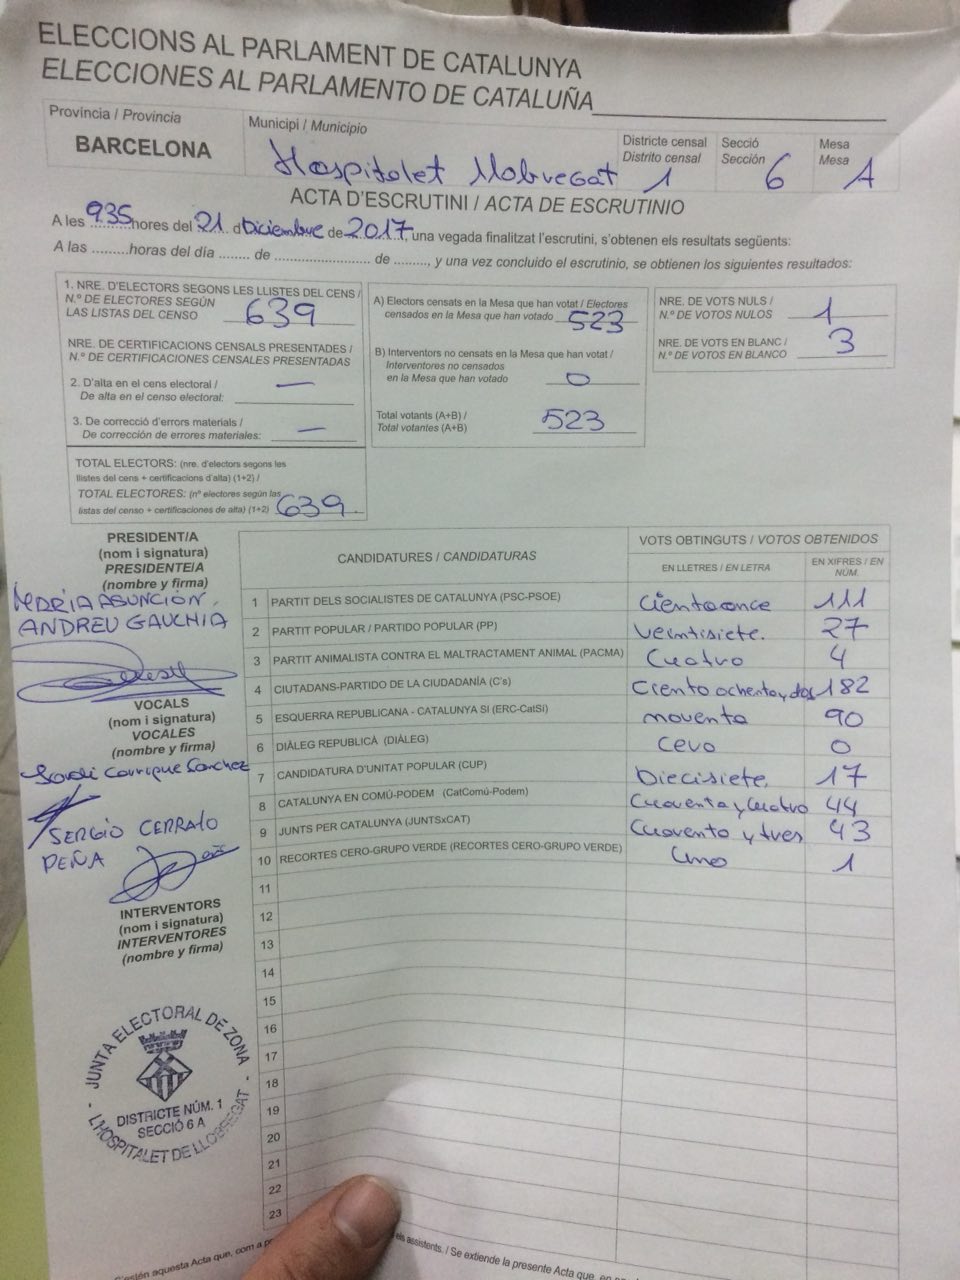 ELECCIONS AL PARLAMENT DE CATALUNYA
ELECCIONES AL PARLAMENTO DE CATALUÑA
Província / Provincia
BARCELONA
Municipi / Municipio
Hospitalet Llobregat
Districte censal
Distrito censal
1
Secció
Sección
6
Mesa
Mesa
A
ACTA D'ESCRUTINI / ACTA DE ESCRUTINIO
A les 935 hores del 21 d Diciembre de 2017, una vegada finalitzat l'escrutini, s'obtenen els resultats següents:
A las .........horas del día ........ de ........................ de ........., y una vez concluido el escrutinio, se obtienen los siguientes resultados:
1. NRE. D'ELECTORS SEGONS LES LLISTES DEL CENS /
N.º DE ELECTORES SEGÚN
LAS LISTAS DEL CENSO 639
NRE. DE CERTIFICACIONS CENSALS PRESENTADES /
N.º DE CERTIFICACIONES CENSALES PRESENTADAS
2. D'alta en el cens electoral /
De alta en el censo electoral: —
3. De correcció d'errors materials /
De corrección de errores materiales: —
TOTAL ELECTORS: (nre. d'electors segons les
llistes del cens + certificacions d'alta) (1+2) /
TOTAL ELECTORES: (nº electores según las
listas del censo + certificaciones de alta) (1+2) 639
A) Electors censats en la Mesa que han votat / Electores
censados en la Mesa que han votado 523
B) Interventors no censats en la Mesa que han votat /
Interventores no censados
en la Mesa que han votado 0
Total votants (A+B) /
Total votantes (A+B) 523
NRE. DE VOTS NULS /
N.º DE VOTOS NULOS 1
NRE. DE VOTS EN BLANC /
N.º DE VOTOS EN BLANCO 3
PRESIDENT/A
(nom i signatura)
PRESIDENTE/A
(nombre y firma)
MARÍA ASUNCIÓN
ANDREU GAUCHIA
VOCALS
(nom i signatura)
VOCALES
(nombre y firma)
Sanchez
SERGIO CERRATO
PEÑA
INTERVENTORS
(nom i signatura)
INTERVENTORES
(nombre y firma)
JUNTA ELECTORAL DE ZONA
DISTRICTE NÚM. 1
SECCIÓ 6 A
L'HOSPITALET DE LLOBREGAT
CANDIDATURES / CANDIDATURAS
VOTS OBTINGUTS / VOTOS OBTENIDOS
EN LLETRES / EN LETRA
EN XIFRES / EN NÚM.
1 PARTIT DELS SOCIALISTES DE CATALUNYA (PSC-PSOE) Cientoonce 111
2 PARTIT POPULAR / PARTIDO POPULAR (PP) Veintisiete. 27
3 PARTIT ANIMALISTA CONTRA EL MALTRACTAMENT ANIMAL (PACMA) Cuatro 4
4 CIUTADANS-PARTIDO DE LA CIUDADANÍA (C's) Ciento ochenta y dos 182
5 ESQUERRA REPUBLICANA - CATALUNYA SI (ERC-CatSí) noventa 90
6 DIÀLEG REPUBLICÀ (DIÀLEG) Cero 0
7 CANDIDATURA D'UNITAT POPULAR (CUP) Diecisiete, 17
8 CATALUNYA EN COMÚ-PODEM (CatComú-Podem) Cuarenta y Cuatro 44
9 JUNTS PER CATALUNYA (JUNTSxCAT) Cuarenta y tres 43
10 RECORTES CERO-GRUPO VERDE (RECORTES CERO-GRUPO VERDE) Uno 1
11
12
13
14
15
16
17
18
19
20
21
22
23
aquesta Acta que, com a
els assistents. / Se extiende la presente Acta que, en